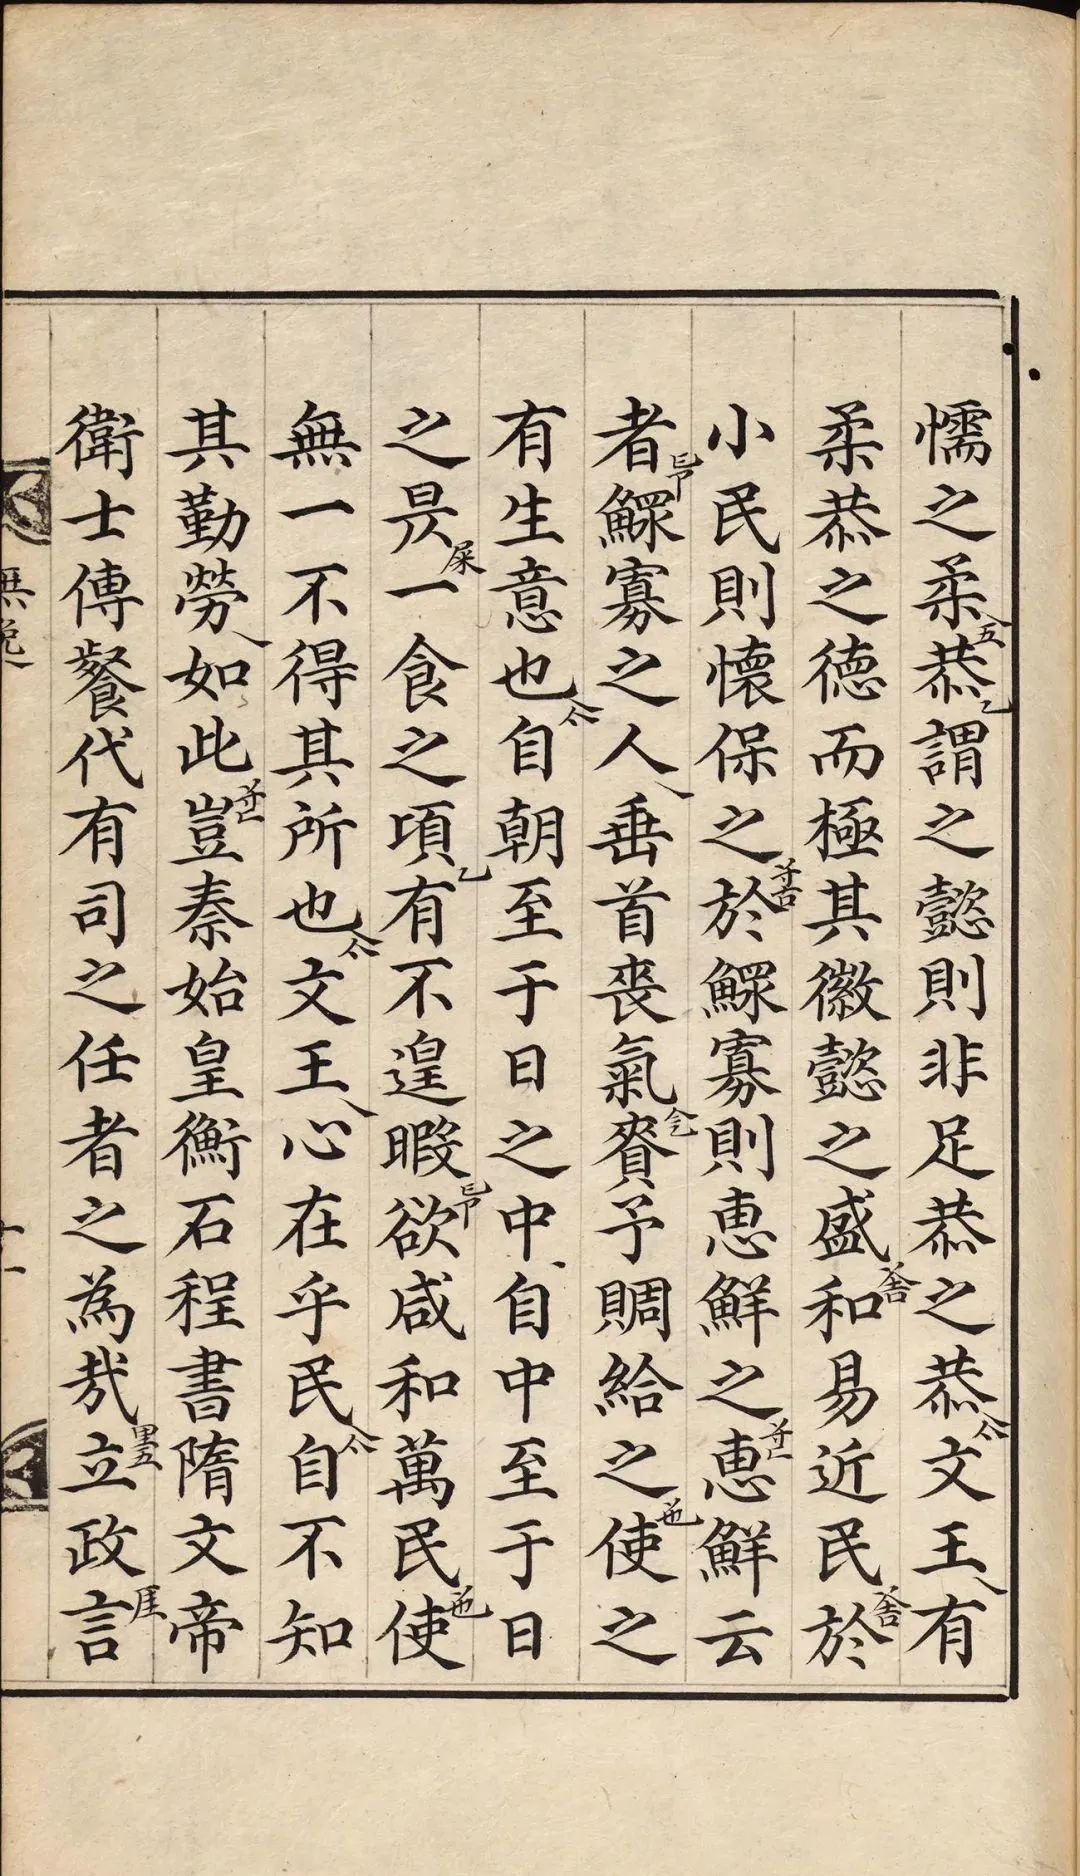 懦之柔恭謂之懿則非足恭之恭文王有
柔恭之德而極其徽懿之盛和易近民於
小民則懷保之於鰥寡則惠鮮之惠鮮云
者鰥寡之人垂首喪氣賚予賙給之使之
有生意也自朝至于日之中自中至于日
之昃一食之頃有不遑暇欲咸和萬民使
無一不得其所也文王心在乎民自不知
其勤勞如此豈秦始皇衡石程書隋文帝
衛士傳餐代有司之任者之為㢤立政言